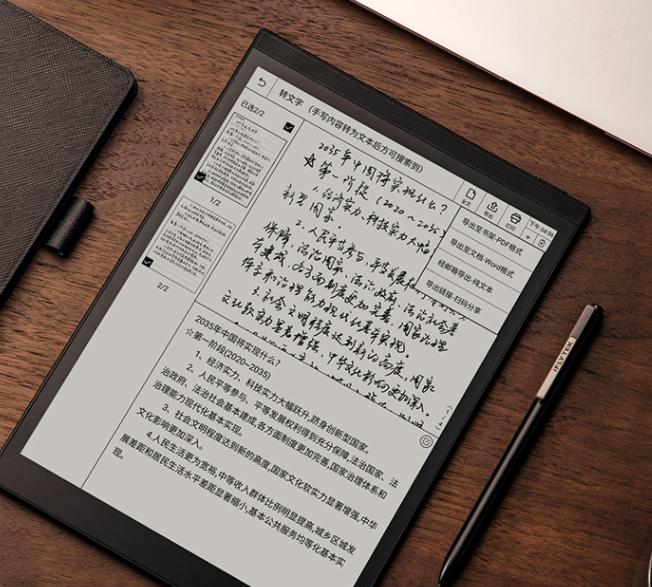 转文字 (手写内容转为文本后方可搜索到)
已选2/2
1/2
2/2
全文
导出
打印
下午 04:56
导出至书架-PDF格式
导出至文档-Word格式
经邮箱导出-纯文本
导出链接-扫码分享
2035年中国将实现什么?
☆第一阶段(2020~2035)
1.经济实力、科技实力大幅
新型国家.
2.人民平等参与、平等发展
保障,法治国家、法治政府、法治社会基
本建成,各方面制度更加完善,国家治理
体系和治理能力现代化基本实现.
3.社会文明程度达到新的高度,国家
文化软实力显著增强,中华文化影响更加深入.
2035年中国将实现什么?
☆第一阶段(2020~2035)
1、经济实力、科技实力大幅跃升,跻身创新型国家。
2、人民平等参与、平等发展权利得到充分保障,法治国家、法
治政府、法治社会基本建成,各方面制度更加完善,国家治理体系和
治理能力现代化基本实现。
3、社会文明程度达到新的高度,国家文化软实力显著增强,中华
文化影响更加深入。
4.人民生活更为宽裕,中等收入群体比例明显提高,城乡区域发
展差距和居民生活水平差距显著缩小,基本公共服务均等化基本实
现。
IFLYTEK